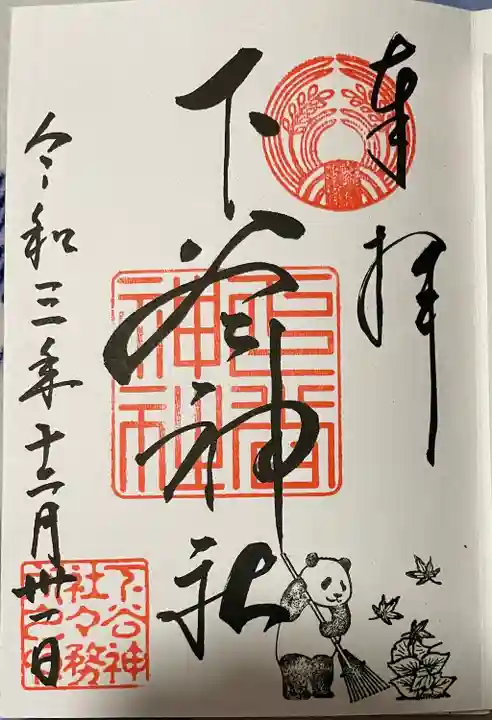 奉拝
下谷神社
下谷神社
令和三年十二月卅一日
下谷神
社々務